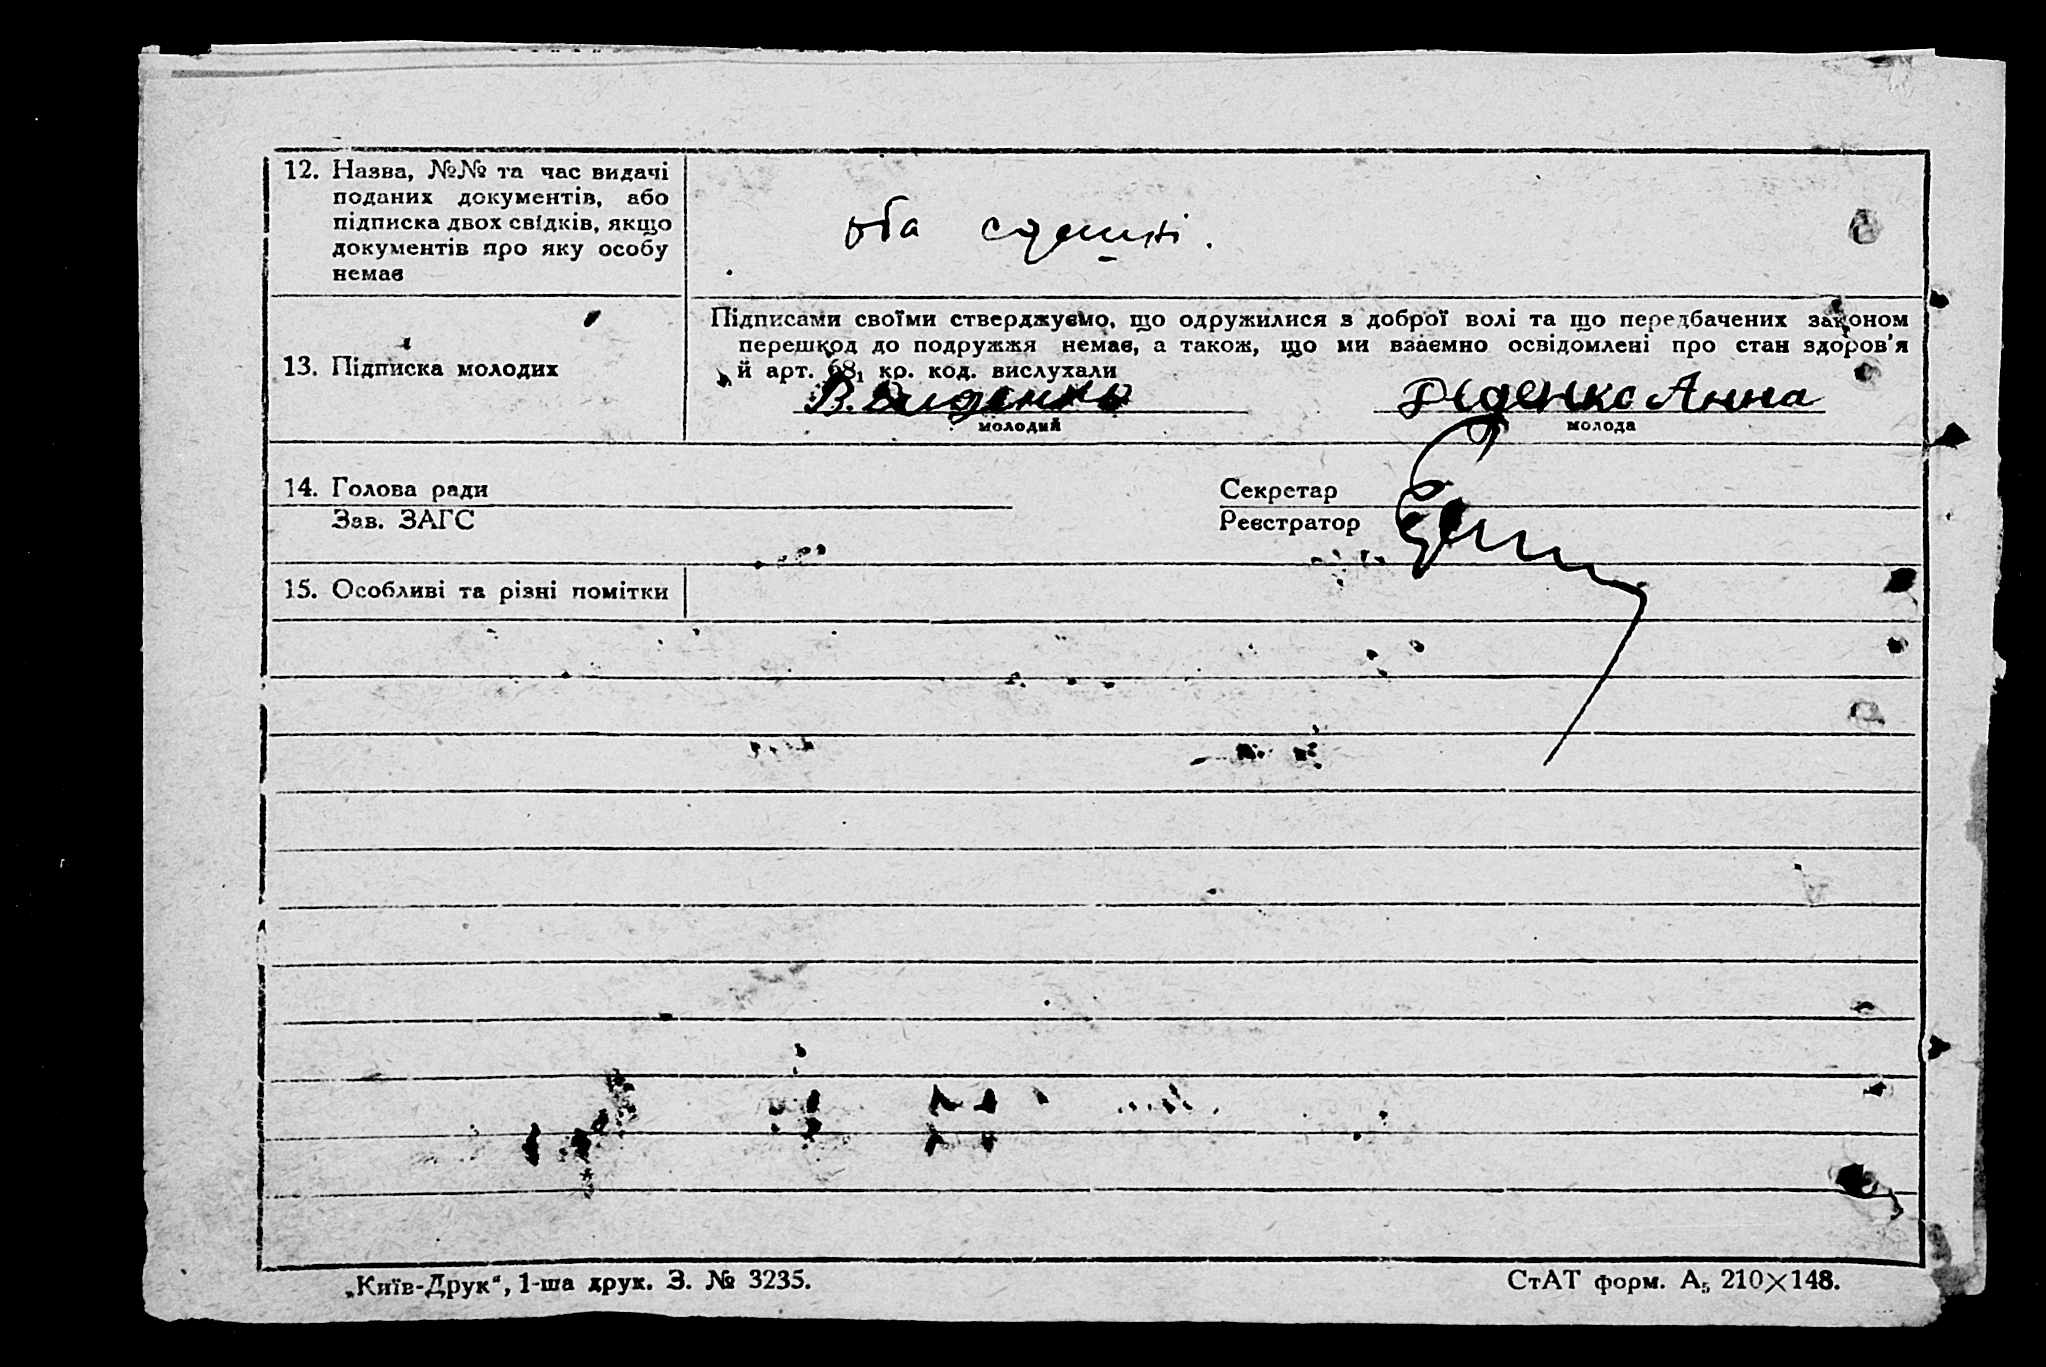 12. Назва, №№ та час видачі
поданих документів, або
підписка двох свідків, якщо
документів про яку особу
немає
оба
13. Підписка молодих
Підписами своїми стверджуємо, що одружилися з доброї волі та що передбачених законом
перешкод до подружжя немає, а також, що ми взаємно освідомлені про стан здоров’я
й арт. 68₁ кр. код. вислухали
В. Діденко Діденко Анна
молодий молода
14. Голова ради Секретар
Зав. ЗАГС Реєстратор
15. Особливі та різні помітки
„Київ-Друк“, 1-ша друк. З. № 3235. СтАТ форм. А₅ 210×148.